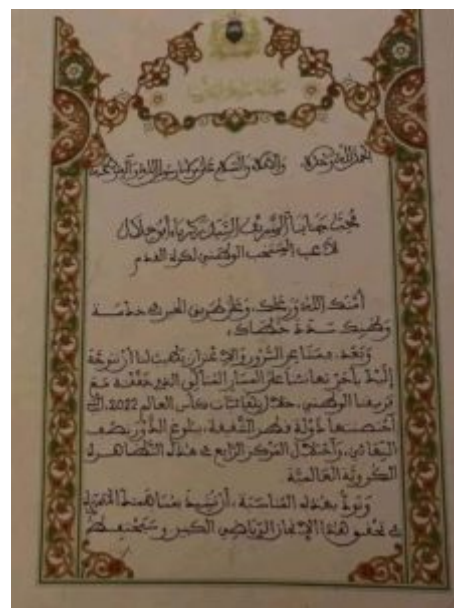 الحمد لله وحده، والصلاة والسلام على مولانا رسول الله وآله وصحبه
محب جنابنا الشريف السيد زكرياء أبو خلال
لاعب المنتخب الوطني لكرة القدم
أمنك الله ورعاك، وعلى طريق الخير في خدمة
وطنك سدد خطاك؛
وبعد، فمن السرور والاعتزاز أن نتوجه
إليك بأحر تهانئنا على المسار المتألق الذي حققته مع
فريقنا الوطني، خلال نهائيات كأس العالم 2022، التي
احتضنتها دولة قطر الشقيقة، ببلوغ الدور نصف
النهائي، واحتلال المركز الرابع في هذه التظاهرة
الكروية العالمية.
ونود بهذه المناسبة، أن نشيد بمساهمتك
في تحقيق هذا الإنجاز الرياضي الكبير